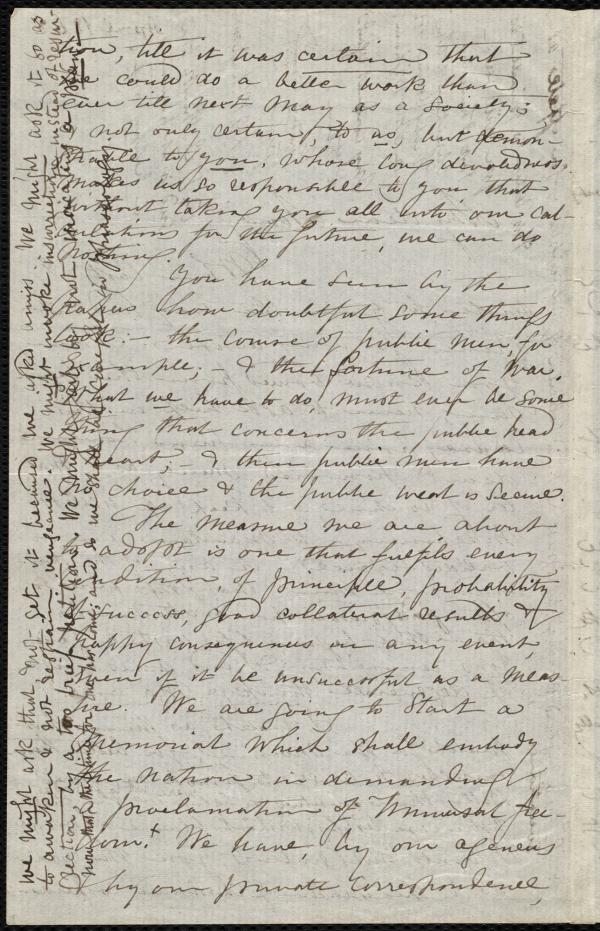 tion, till it was certain that
we could do a better work than
ever till next May as a Society;
& not only certain, to us, but demon-
strable to you, whose long devotedness
makes us so responsible to you, that
without taking you all into our cal-
culations for the future, we can do
nothing.
You have seen by the
papers how doubtful some things
look: – the course of public men, for
example; – & the fortune of War.
What we have to do, must ever be some
thing that concerns the public head
& heart; – & then public men have
no choice & the public weal is secure.
The measure we are about
to adopt is one that fulfils every
condition, of principle, probability
of success, good collateral results &
happy consequences in any event,
even if it be unsuccessful as a meas-
ure. We are going to start a
Memorial which shall embody
the nation in demanding
a proclamation of Universal free-
dom.+ We have, by our agencies
& by our private correspondence,
We might ask that & not get it because we ask amiss. We might ask it so as
to awaken & not restrain vengeance. We might invoke insurrection instead of resur-
rection by a too brief petition. We might
now that the time for